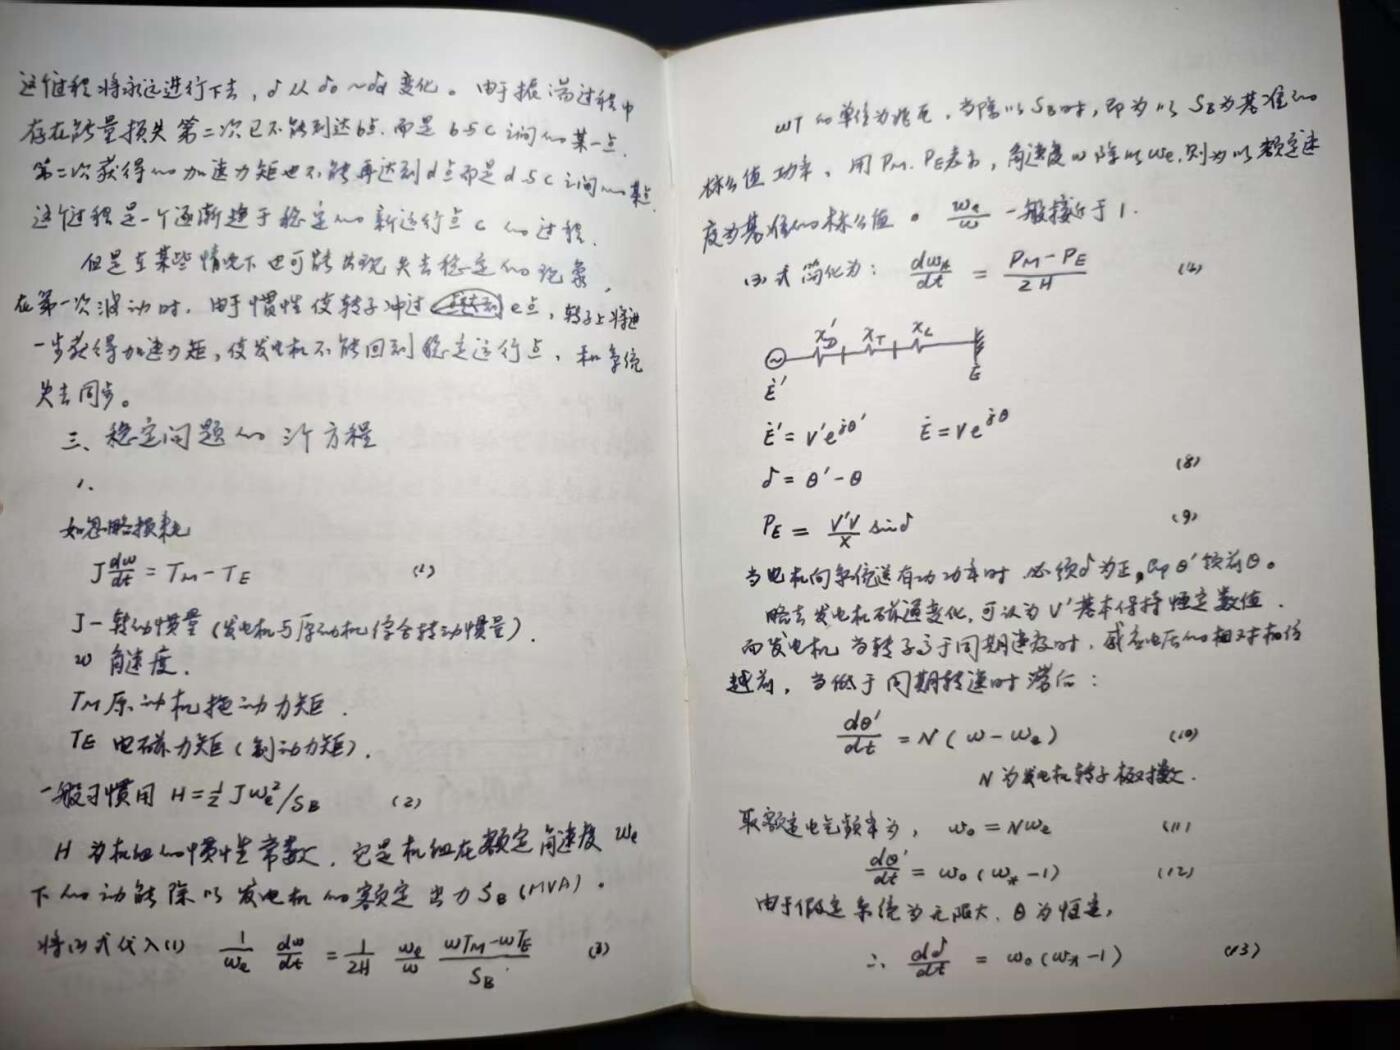 这个过程将永远进行下去，δ从δ₀～δd变化。由于振荡过程中
存在能量损失第二次已不能到达b点.而是b与c之间的某一点.
第二次获得的加速力矩也不能再达到d点而是d与c之间的某点.
这个过程是一个逐渐趋于稳定的新运行点c的过程.
但是在某些情况下也可能出现失去稳定的现象,
在第一次波动时.由于惯性使转子冲过e点,转子上将进
一步获得加速力矩,使发电机不能回到稳定运行点,和系统
失去同步。
三、稳定问题的计方程
1.
如忽略损耗
J dω/dt = TM - TE (1)
J-转动惯量(发电机与原动机综合转动惯量).
ω 角速度.
TM 原动机拖动力矩.
TE 电磁力矩(制动力矩).
一般习惯用 H=½Jωe²/SB (2)
H 为机组的惯性常数,它是机组在额定角速度ωe
下的动能除以发电机的额定出力SB(MVA)。
将(2)式代入(1) 1/ωe dω/dt = 1/2H ωe/ω (ωTM-ωTE)/SB (3)
ωT的单位为兆瓦,当除以SB时,即为以SB为基准的
标么值功率,用PM.PE表示,角速度ω除以ωe,则为以额定速
度为基准的标么值。ωe/ω 一般接近于1.
(3)式简化为: dω*/dt = (PM-PE)/2H (4)
X'D XT XL
Ė' Ė
Ė'=V'e^jθ' Ė=Ve^jθ
δ=θ'-θ (8)
PE = V'V/X sinδ (9)
当电机向系统送有功功率时 必须δ为正,即θ'领前θ。
略去发电机磁通变化,可认为V'基本保持恒定数值.
而发电机当转子高于同期速度时,感应电压的相对相位
越前,当低于同期转速时滞后:
dθ'/dt = N(ω-ωe) (10)
N为发电机转子极对数.
取额定电气频率为, ω₀=Nωe (11)
dθ'/dt = ω₀(ω*-1) (12)
由于假定系统为无限大.θ为恒定,
∴ dδ/dt = ω₀(ω*-1) (13)